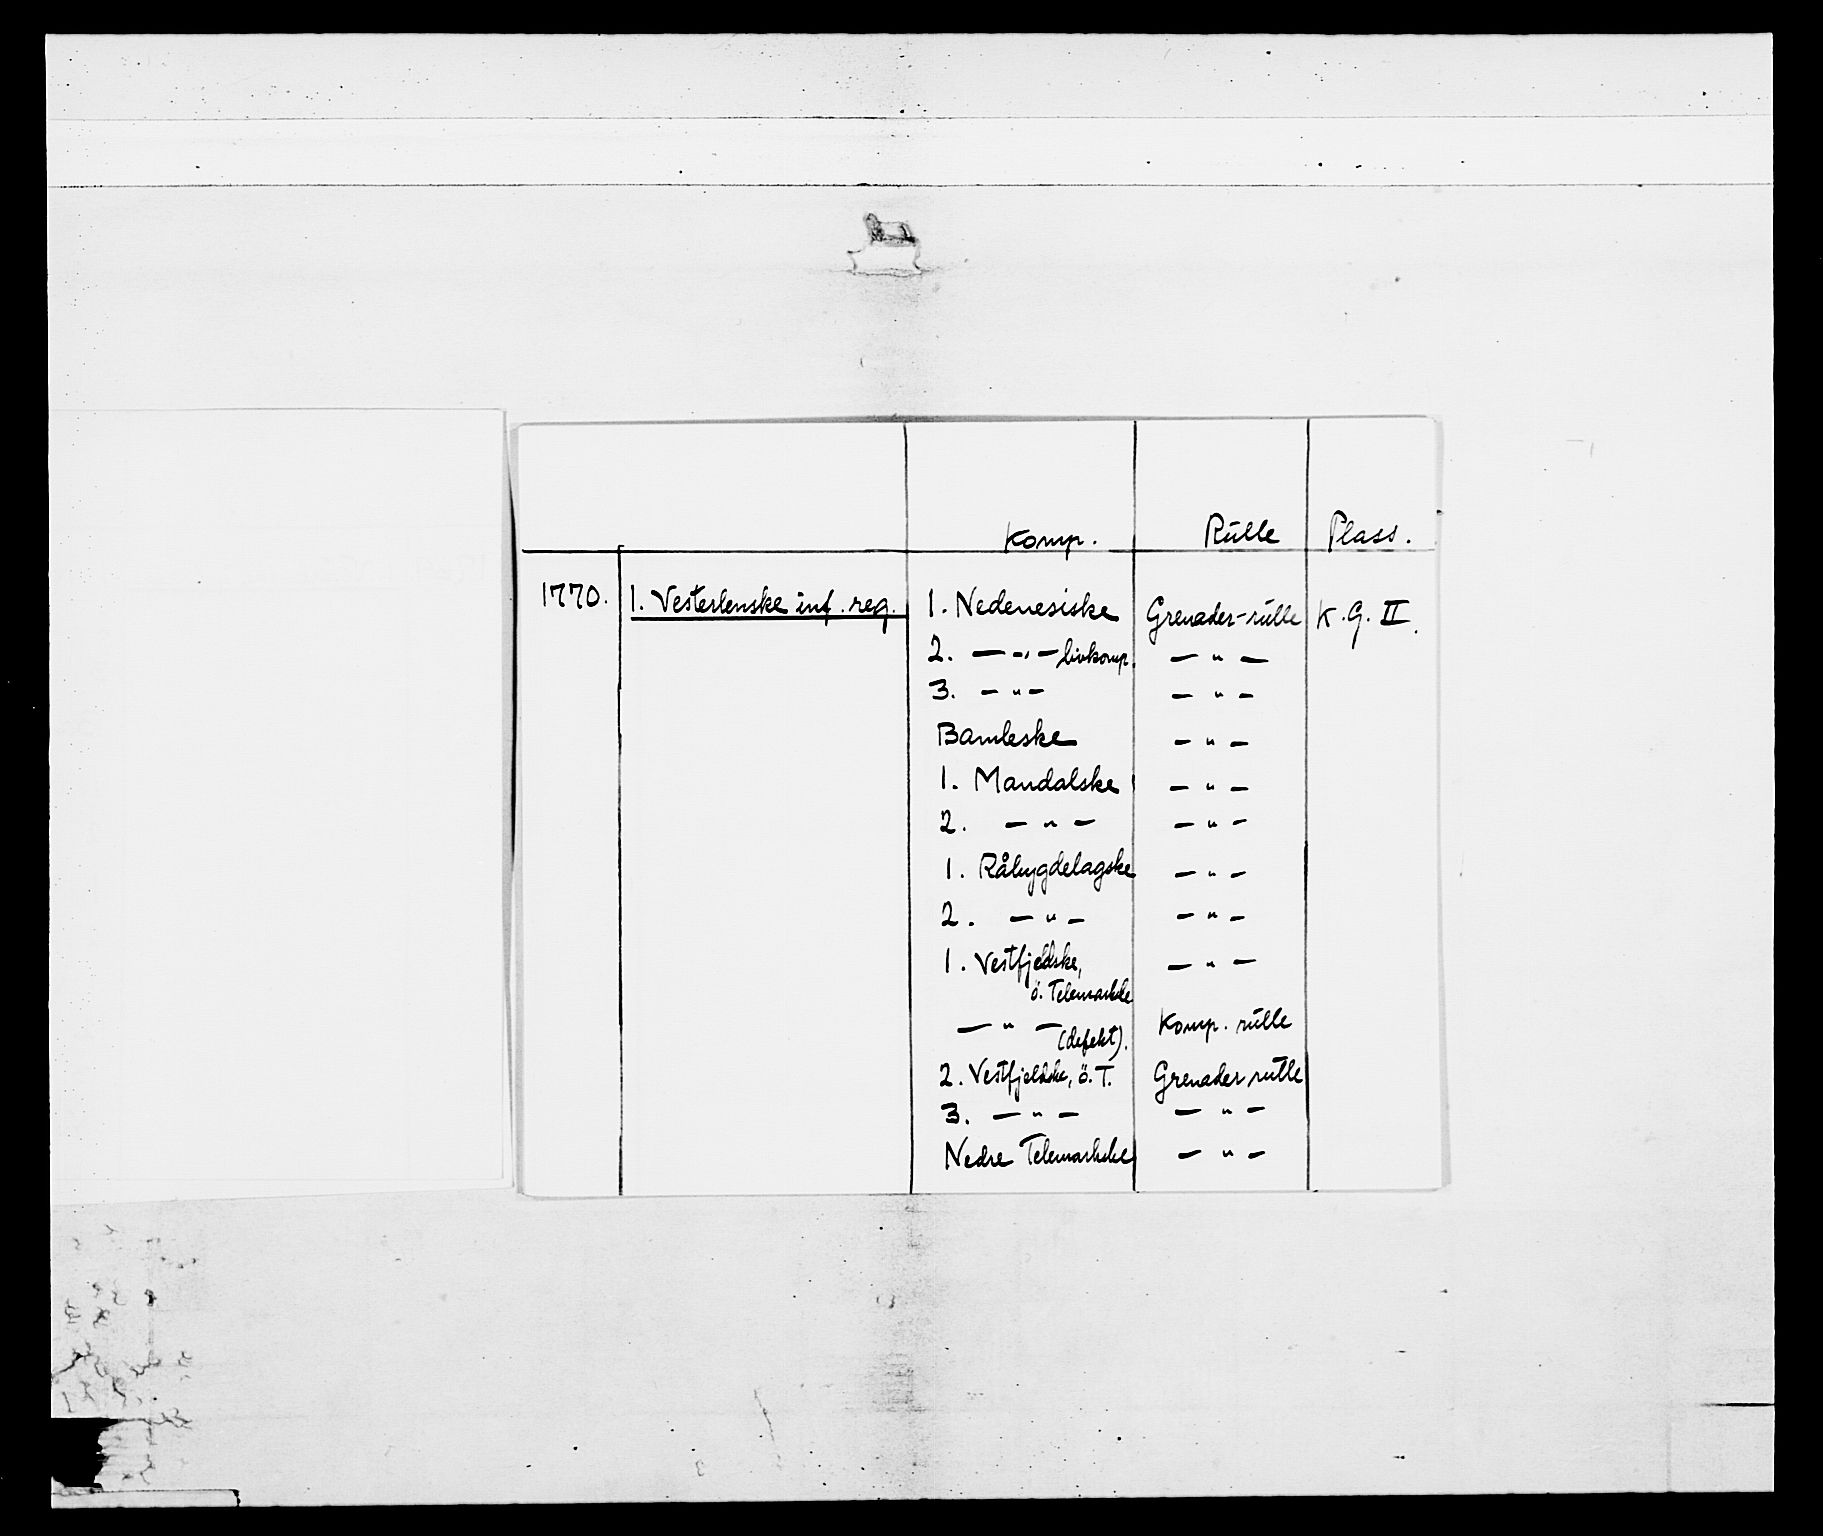 Komp. Rulle Plass.
1770. 1. Vesterlenske inf. reg. 1. Nedenesiske Grenader-rulle K.G. II.
2. — " — livkomp. — " —
3. — " — — " —
Bamleske — " —
1. Mandalske — " —
2. — " — — " —
1. Råbygdelagske — " —
2. — " — — " —
1. Vestfjeldske, — " —
ö. Telemarkske
— " — Komp. rulle
(defekt).
2. Vestfjeldske, ö. T. Grenader rulle
3. — " — — " —
Nedre Telemarkske — " —